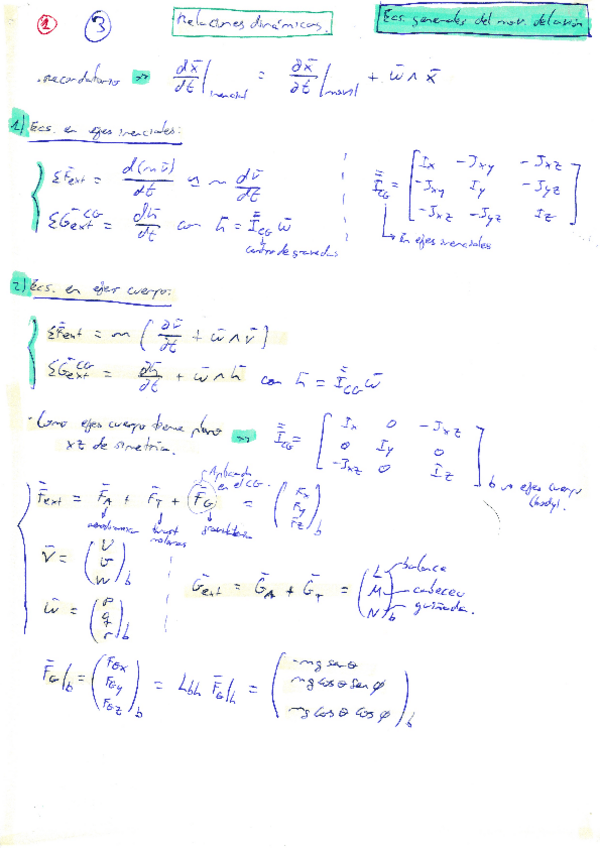 ① ③ Relaciones dinámicas. Ecs. generales del mov. del avión
· recordatorio → dx̄/dt|inercial = ∂x̄/∂t|móvil + w̄ ∧ x̄
1) Ecs. en ejes inerciales:
ΣF̄ext = d(m v̄)/dt ≃ m dv̄/dt
ΣḠext^CG = dh̄/dt con h̄ = I̿CG w̄
centro de gravedad
I̿CG = [ Ix -Jxy -Jxz
-Jxy Iy -Jyz
-Jxz -Jyz Iz ]
↳ En ejes inerciales
2) Ecs. en ejes cuerpo:
ΣF̄ext = m ( ∂v̄/∂t + w̄ ∧ v̄ )
ΣḠext^CG = ∂h̄/∂t + w̄ ∧ h̄ con h̄ = I̿CG w̄
· Como ejes cuerpo tiene plano
xz de simetría.
→ I̿CG = [ Ix 0 -Jxz
0 Iy 0
-Jxz 0 Iz ]b → ejes cuerpo
(body).
Aplicada
en el CG.
F̄ext = F̄A + F̄T + F̄G = ( Fx
Fy
Fz )b
aerodinámica thrust gravitatoria
motores
v̄ = ( U
v
w )b
Ḡext = ḠA + ḠT = ( L → balance
M → cabeceo
N → guiñada. )b
w̄ = ( p
q
r )b
F̄G|b = ( FGx
FGy
FGz )b = Lbh F̄G|h = ( -mg sen θ
mg cos θ sen φ
mg cos θ cos φ )b